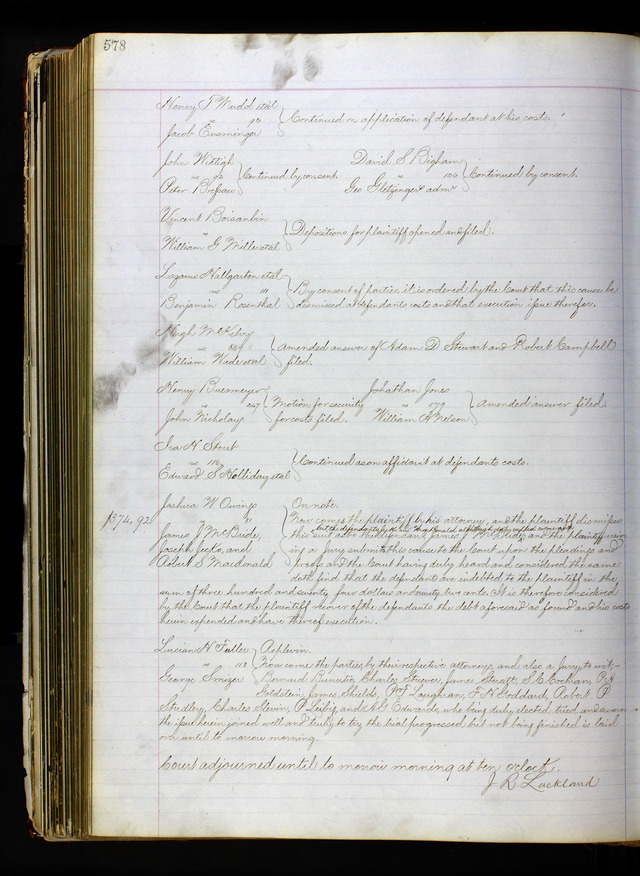 578
Henry T Mudd et al
vs 96 Continued on application of defendant at his costs.
Jacob Ensminger
John Wittigh David S Bigham
vs 92 Continued by consent. vs 106 Continued by consent.
Peter Geo Gletzinger admr
Vincent Boisaubin
vs Depositions for plaintiff opened and filed.
William G Miller et al
Lazarus Hellgarten et al
vs 111 By consent of parties, it is ordered by the Court that this cause be
Benjamin Rosenthal dismissed at defendants costs and that execution issue therefor.
Hugh McKelvy
vs Amended answer of Adam D. Stewart and Robert Campbell
William Wade et al filed.
Henry Buesmeyer Johathan Jones
vs 247 Motion for security vs Amended answer filed
John Nicholay for costs filed. William H Nelson
Ira N Stout
vs 112 Continued as on affidavit at defendants costs.
Edward S Holliday et al
Joshua W Owings On note.
$374,92 vs Now comes the plaintiff by his attorney, and the plaintiff dismisses
but the defendants although duly called come not
James J McBride, this suit as to the defendant James J McBride, and the plaintiff waiv
Joseph and ing a jury submits this cause to the Court upon the pleadings and
Robert S Macdonald proofs and the Court having duly heard and considered the same
doth find that the defendant are indebted to the plaintiff in the
sum of three hundred and seventy four dollars and ninety two cents. It is therefore considered
by the Court that the plaintiff recover of the defendants the debt aforesaid as found and his costs
herein expended and have thereof execution.
Lucian H Fuller Replevin.
vs 118 Now come the parties by their respective attorneys, and also a jury to wit:-
George Smizer Bernard Charles Stuever, James Streett, S K Cochran, P
Goldstein, James Shields, P J Loughran, F N Goddard, Robert P
Studley, Charles Slevin, P Leibig, and A G Edwards who being duly elected tried and sworn
the issue herein joined well and truly to try the trial progressed but not being finished is laid
over until to morrow morning.
Court adjourned until to morrow morning at ten o'clock.
J R Lackland